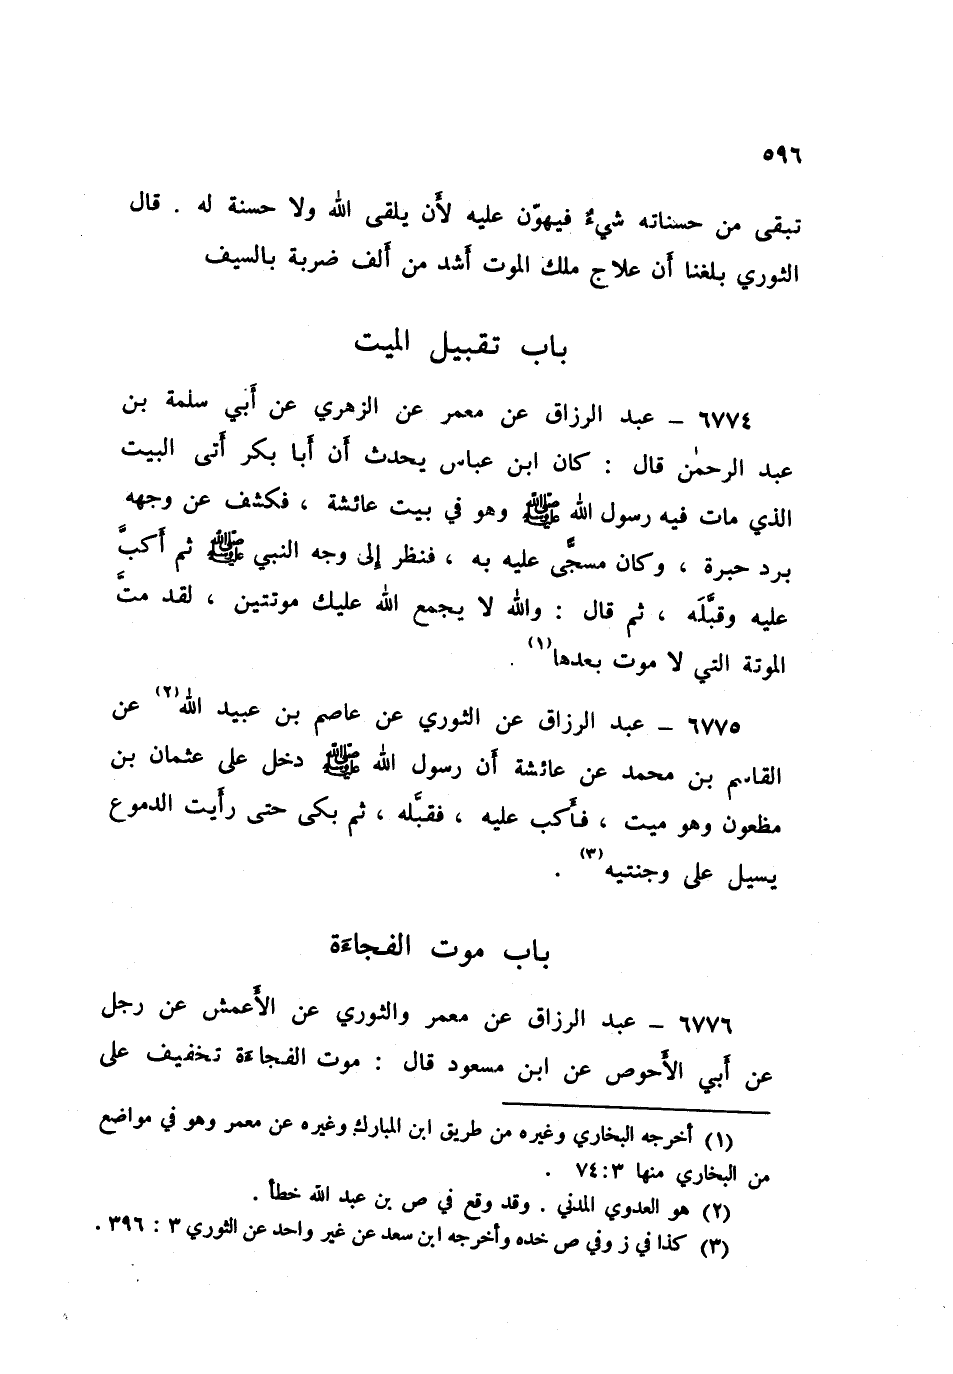 ٥٩٦
تبقى من حسناته شيءٌ فيهوّن عليه لأَن يلقى الله ولا حسنة له . قال
الثوري بلغنا أَن علاج ملك الموت أَشد من أَلف ضربة بالسيف
باب تقبيل الميت
٦٧٧٤ – عبد الرزاق عن معمر عن الزهري عن أَبي سلمة بن
عبد الرحمٰن قال : كان ابن عباس يحدث أَن أَبا بكر أَتى البيت
الذي مات فيه رسول الله ﷺ وهو في بيت عائشة ، فكشف عن وجهه
برد حبرة ، وكان مسجًّى عليه به ، فنظر إلى وجه النبي ﷺ ثم أَكبَّ
عليه وقبَّلَه ، ثم قال : والله لا يجمع الله عليك موتتين ، لقد متَّ
الموتة التي لا موت بعدها(١) .
٦٧٧٥ – عبد الرزاق عن الثوري عن عاصم بن عبيد الله(٢) عن
القاسم بن محمد عن عائشة أَن رسول الله ﷺ دخل على عثمان بن
مظعون وهو ميت ، فأَكب عليه ، فقبَّله ، ثم بكى حتى رأَيت الدموع
يسيل على وجنتيه(٣) .
باب موت الفجاءَة
٦٧٧٦ – عبد الرزاق عن معمر والثوري عن الأَعمش عن رجل
عن أَبي الأَحوص عن ابن مسعود قال : موت الفجاءَة تخفيف على
(١) أخرجه البخاري وغيره من طريق ابن المبارك وغيره عن معمر وهو في مواضع
من البخاري منها ٣:٧٤ .
(٢) هو العدوي المدني . وقد وقع في ص بن عبد الله خطأ .
(٣) كذا في ز وفي ص خده وأخرجه ابن سعد عن غير واحد عن الثوري ٣ : ٣٩٦ .